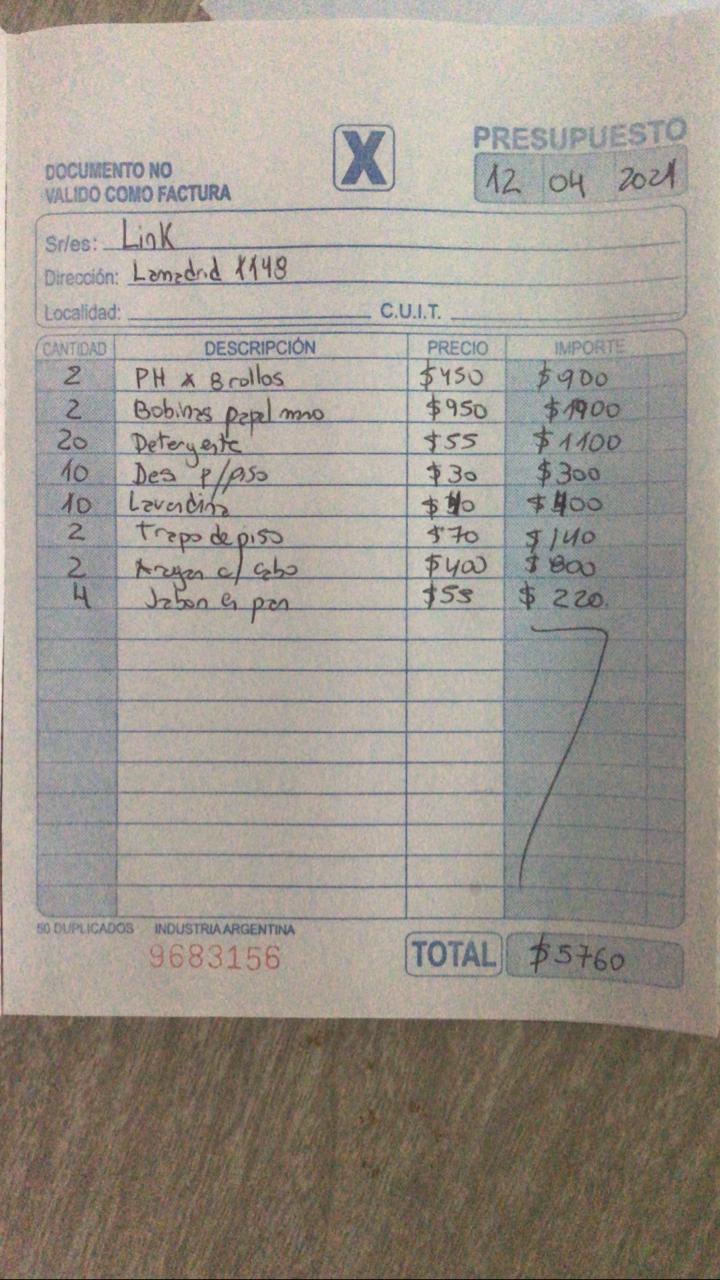 DOCUMENTO NO
VALIDO COMO FACTURA
X
PRESUPUESTO
12 04 2021
Sr/es: Link
Dirección: Lamadrid 1148
Localidad: C.U.I.T.
CANTIDAD DESCRIPCIÓN PRECIO IMPORTE
2 PH x 8 rollos $450 $900
2 Bobinas papel mno $950 $1900
20 Detergente $55 $1100
10 Des p/piso $30 $300
10 Lavandina $40 $400
2 Trapo de piso $70 $140
2 c/ cabo $400 $800
4 Jabon en pan $55 $220
50 DUPLICADOS INDUSTRIA ARGENTINA
9683156
TOTAL $5760